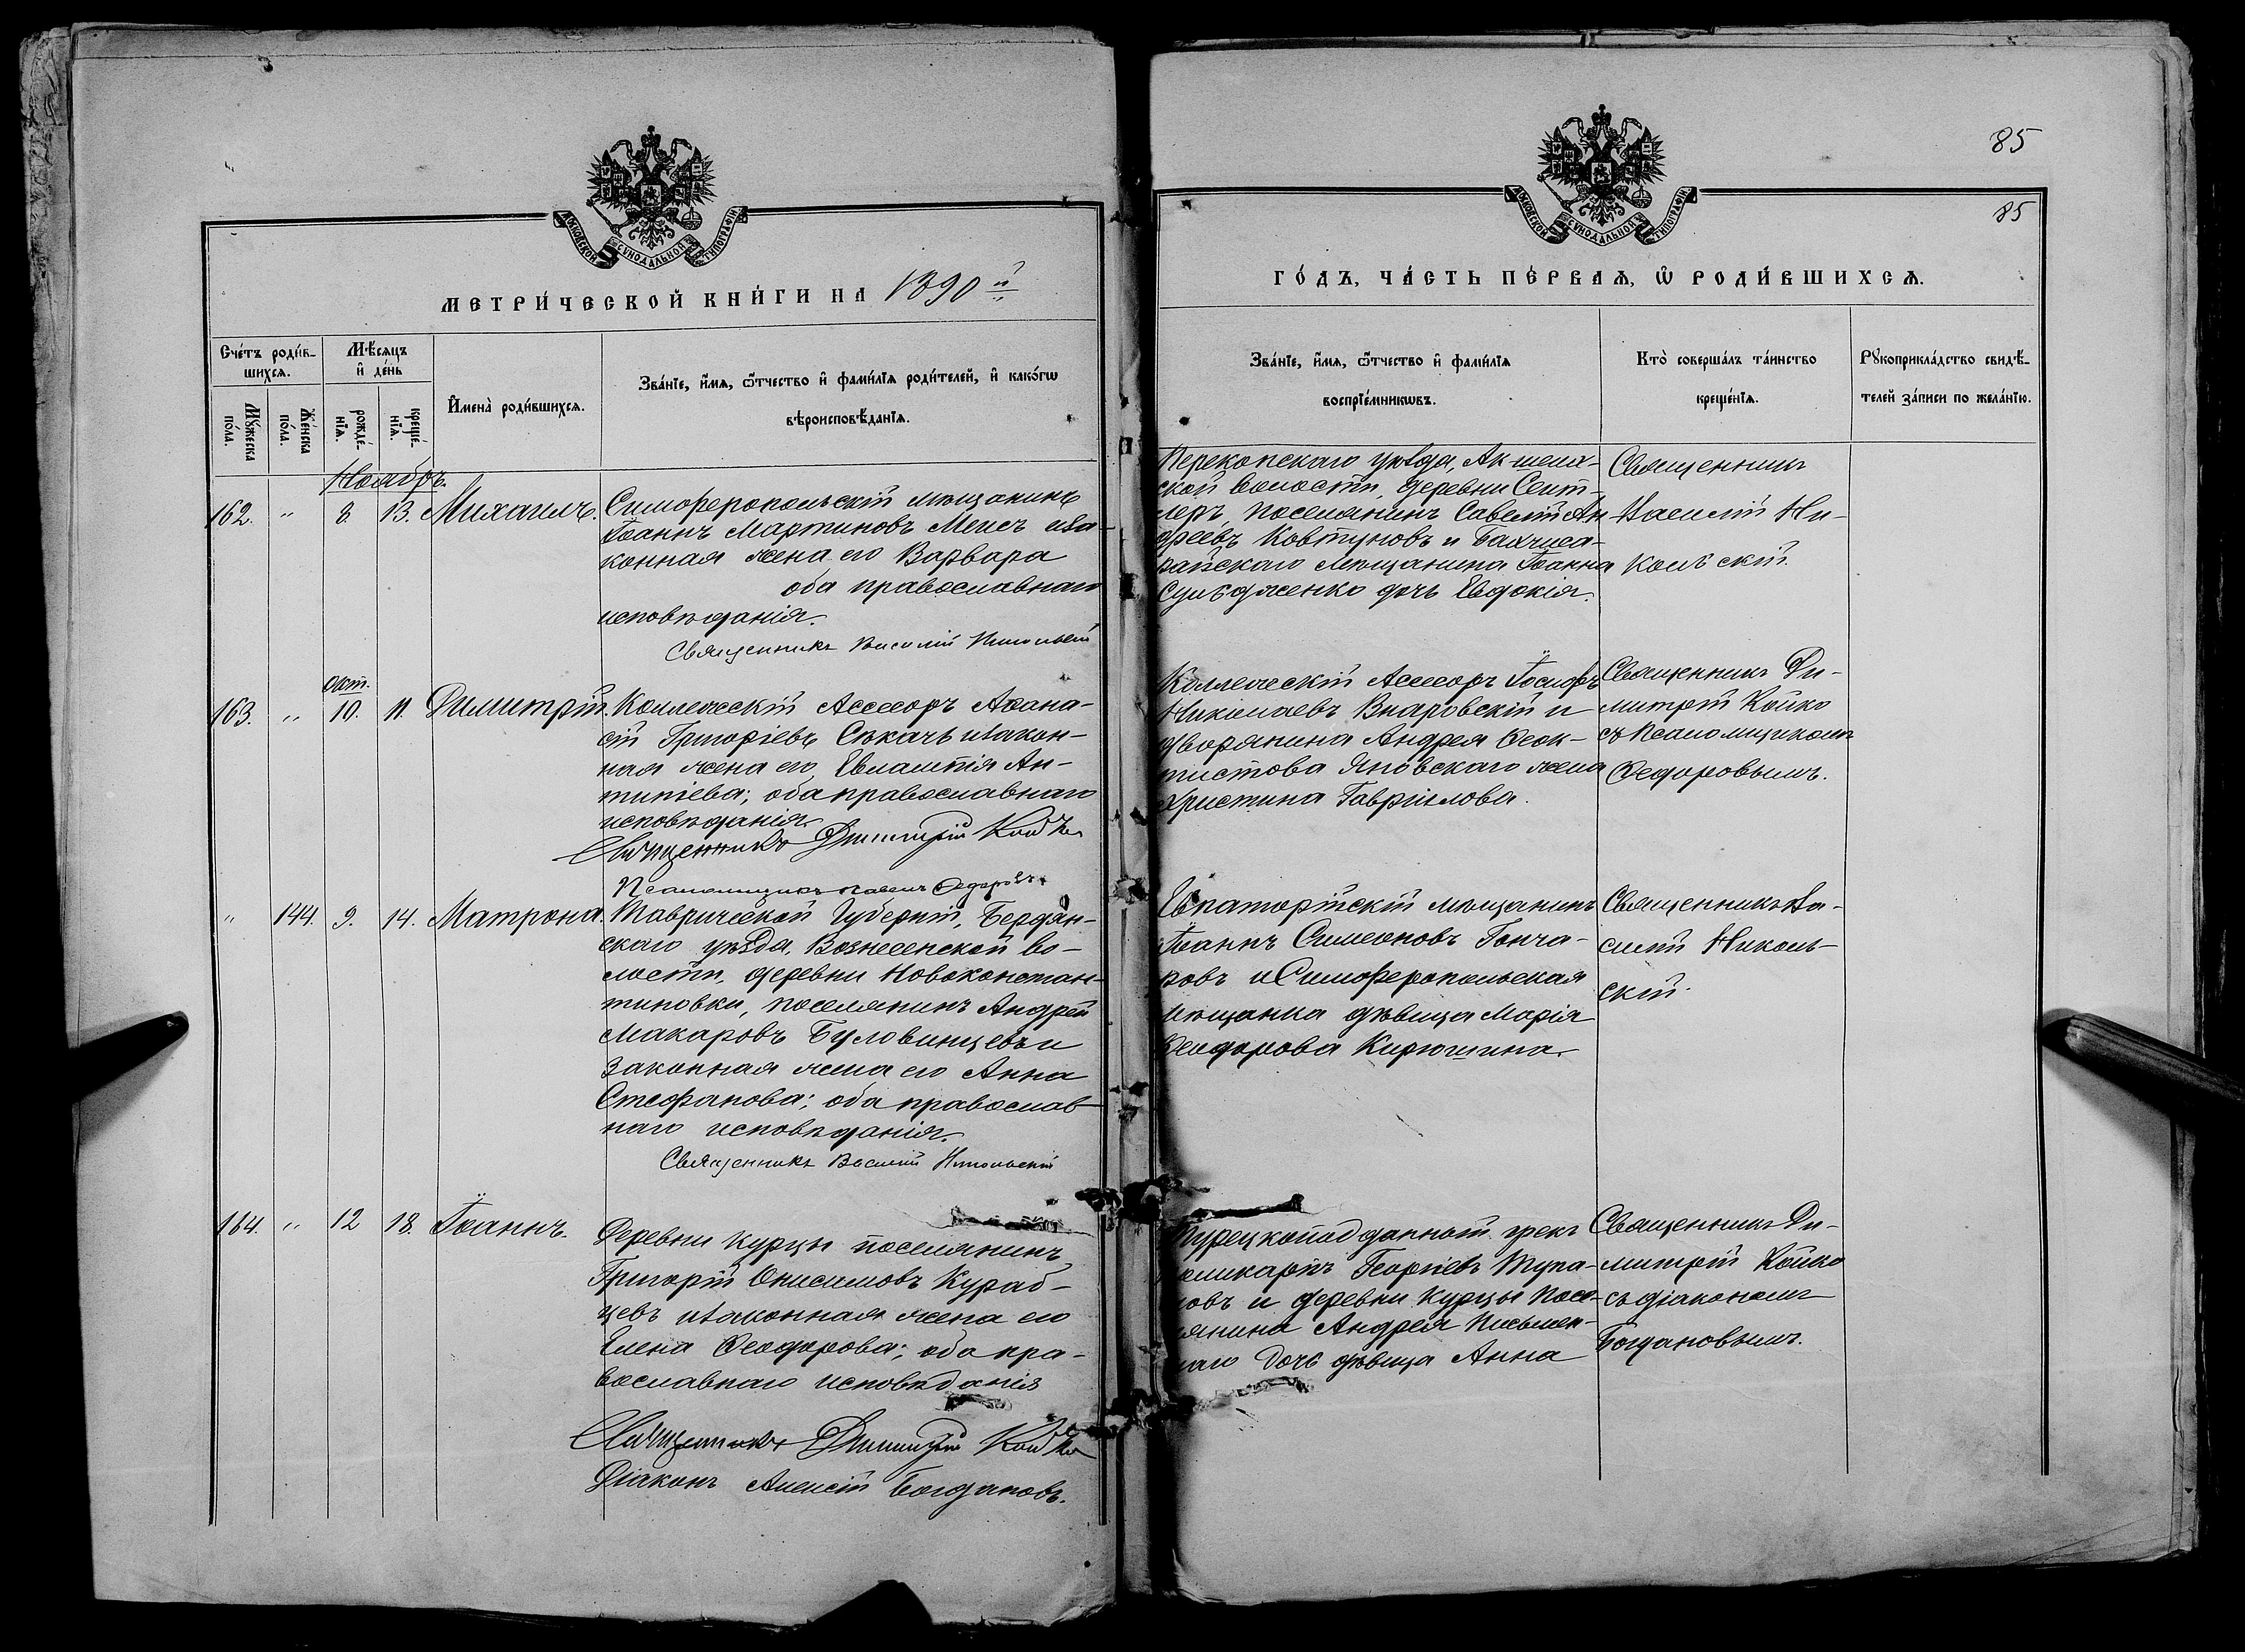 МОСКОВСКОЙ СѴНОДАЛЬНОЙ ТИПОГРАФІИ
МЕТРИ́ЧЕСКОЙ КНИ́ГИ НА 1890й
Сче́тъ роди́в-
шихсѧ.
Мѣ́сѧцъ
и҆ де́нь
Мꙋ́жеска
по́ла.
Же́нска
по́ла.
рожде́-
нїѧ.
креще́-
нїѧ.
И҆мена̀ роди́вшихсѧ.
Зва́нїе, и҆́мѧ, ѻ҆́тчество и҆ фами́лїѧ роди́телей, и҆ како́гѡ
вѣроисповѣ́данїѧ.
Ноябрь
162. " 8. 13. Михаилъ.
Симферопольскій мѣщанинъ
Іоаннъ Мартиновъ и за-
конная жена его Варвара
оба православнаго
исповѣданія.
Священникъ Василій Никольскій
окт.
163. " 10. 11. Димитрій.
Коллежскій Ассесоръ Аѳана-
сій Григорьевъ Сѣкачъ и закон-
ная жена его Евлампія Ан-
типіева; оба православнаго
исповѣданія.
Священникъ Димитрій Койко
Псаломщикъ Павелъ Ѳедоровъ.
" 144. 9. 14. Матрона.
Таврической Губерніи, Бердян-
скаго уѣзда, Вознесенской во-
лости, деревни Новоконстан-
тиновки, поселянинъ Андрей
Макаровъ Буловинцевъ и
законная жена его Анна
Стефанова; оба православ-
наго исповѣданія.
Священникъ Василій Никольскій
164. " 12 18. Іоаннъ.
Деревни Курцы поселянинъ
Григорій Онисимовъ Кураб-
цевъ и законная жена его
Елена Ѳеодорова; оба пра-
вославнаго исповѣданія
Священникъ Димитрій Койко
Діаконъ Алексій Богдановъ.
85
85
МОСКОВСКОЙ СѴНОДАЛЬНОЙ ТИПОГРАФІИ
ГО́ДЪ, ЧА́СТЬ ПЕ́РВАѦ, Ѽ РОДИ́ВШИХСѦ.
Зва́нїе, и҆́мѧ, ѻ҆́тчество и҆ фами́лїѧ
воспрїе́мникѡвъ.
Кто̀ соверша́лъ та́инство
креще́нїѧ.
Рꙋкоприкла́дство свидѣ́-
телей за́писи по жела́нїю.
Перекопскаго уѣзда, Ак-шеих-
ской волости, деревни Сеит-
леръ, поселянинъ Савелій Ан-
дреевъ Ковтуновъ и Бахчиса-
райскаго мѣщанина Іоанна
дочь Евдокія.
Священникъ
Василій Ни-
кольскій.
Коллежскій Асессоръ Іосифъ
Николаевъ Вноровскій и
дворянина Андрея Ѳеок-
тистова Яновскаго жена
Христина Гавріилова.
Священникъ Ди-
митрій Койко
съ Псаломщикомъ
Ѳедоровымъ.
Евпаторійскій мѣщанинъ
Іоаннъ Симеоновъ Гонча-
ровъ и Симферопольская
мѣщанка дѣвица Марія
Ѳеодорова Кирюшина.
Священникъ Ва-
силій Николь-
скій.
Турецкоподданный грекъ
Поликарпъ Георгіевъ Тупа-
ловъ и деревни Курцы посе-
лянина Андрея Письмен-
наго дочь дѣвица Анна
Священникъ Ди-
митрій Койко
съ діакономъ
Богдановымъ.